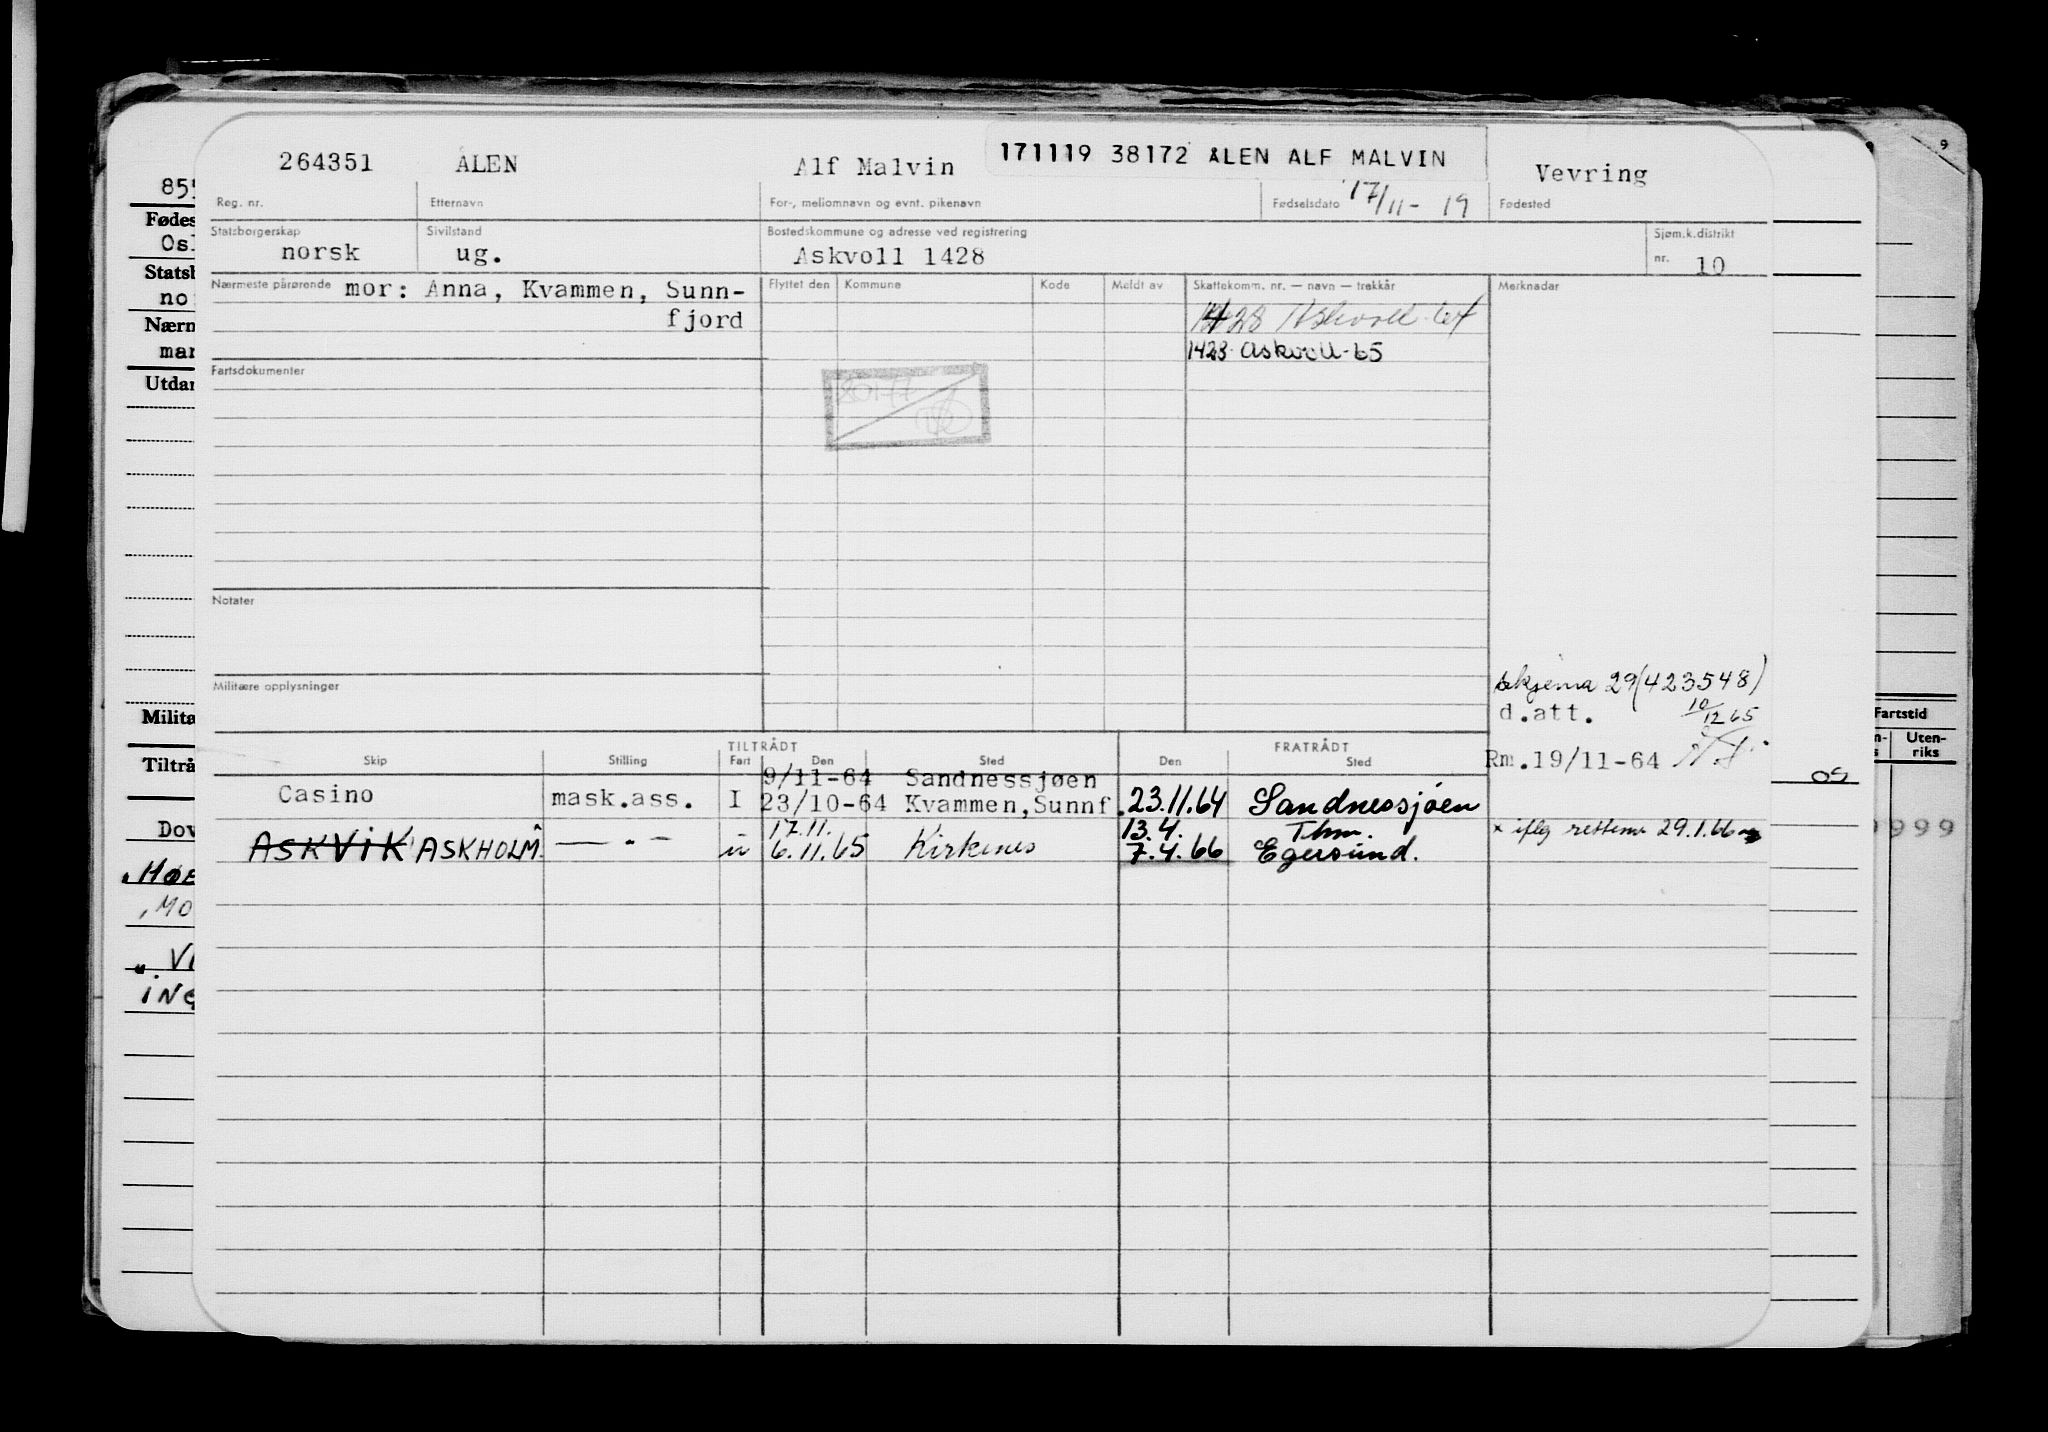 264351 ÅLEN Alf Malvin 171119 38172 ÅLEN ALF MALVIN Vevring
Reg. nr. Etternavn For-, mellomnavn og evnt. pikenavn Fødselsdato 17/11-19 Fødested
Statsborgerskap Sivilstand Bostedskommune og adresse ved registrering Sjøm.k.distrikt
norsk ug. Askvoll 1428 nr. 10
Nærmeste pårørende mor: Anna, Kvammen, Sunn- Flyttet den Kommune Kode Meldt av Skattekomm. nr. — navn — trekkår Merknader
fjord 1428 Askvoll
1428 Askvoll-65
Fartsdokumenter
Notater
Militære opplysninger
skjema 29(423548)
d.att. 10/12 65
Rm.19/11-64
TILTRÅDT FRATRÅDT
Skip Stilling Fart Den Sted Den Sted
9/11-64 Sandnessjøen
Casino mask.ass. I 23/10-64 Kvammen,Sunnf. 23.11.64 Sandnessjøen
17.11. 13.4. Thm.
ASKVIK ASKHOLM — " — u 6.11.65 Kirkenes 7.4.66 Egersund.
x iflg rettemn 29.1.66
855
Fødes
Osl
Statsb
nor
Nærn
mar
Utdan
Milita
Tiltrå
Dov
HØE
MO
VI
ING
9
Fartstid
Uten-
riks
09
9999